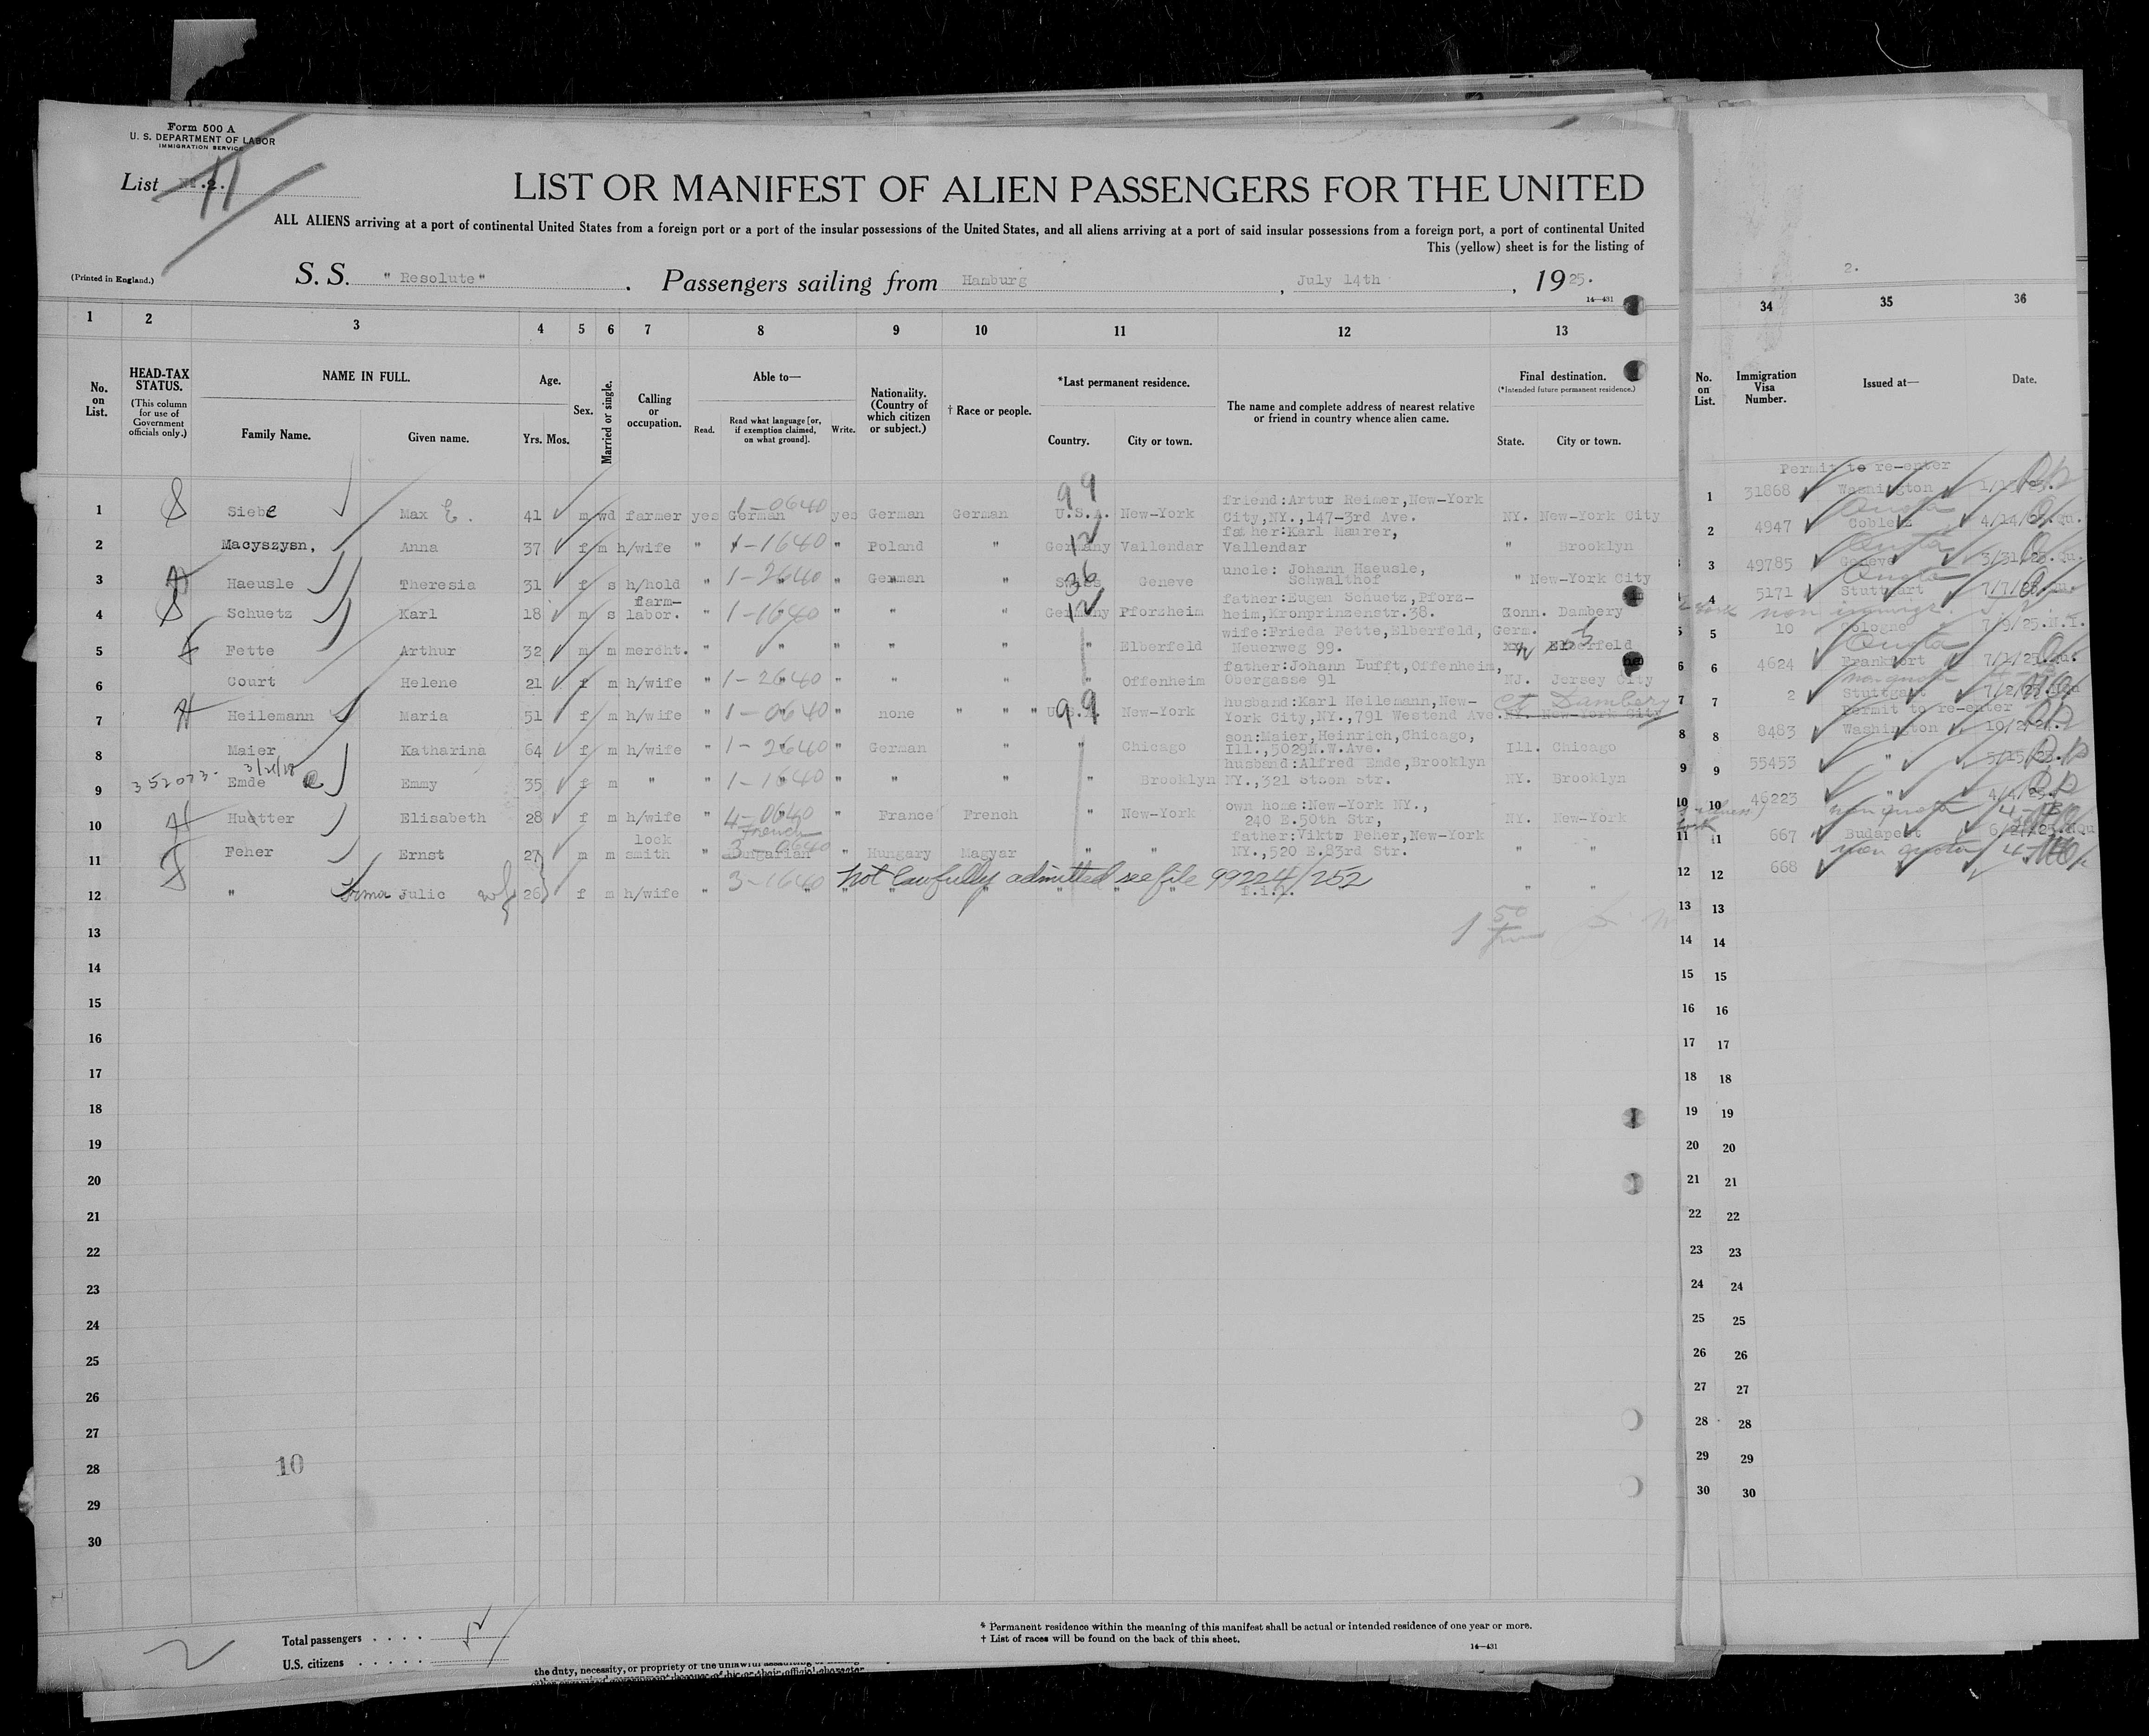 Form 500 A
U. S. DEPARTMENT OF LABOR
IMMIGRATION SERVICE
List 11
LIST OR MANIFEST OF ALIEN PASSENGERS FOR THE UNITED
ALL ALIENS arriving at a port of continental United States from a foreign port or a port of the insular possessions of the United States, and all aliens arriving at a port of said insular possessions from a foreign port, a port of continental United
This (yellow) sheet is for the listing of
(Printed in England.)
S. S. "Resolute". Passengers sailing from Hamburg, July 14th, 1925.
14—431
2.
1 2 3 4 5 6 7 8 9 10 11 12 13
34 35 36
No. on List.
HEAD-TAX STATUS.
(This column for use of Government officials only.)
NAME IN FULL.
Family Name. Given name.
Age.
Yrs. Mos.
Sex.
Married or single.
Calling or occupation.
Able to—
Read. Read what language [or, if exemption claimed, on what ground]. Write.
Nationality. (Country of which citizen or subject.)
† Race or people.
*Last permanent residence.
Country. City or town.
The name and complete address of nearest relative or friend in country whence alien came.
Final destination.
(*Intended future permanent residence.)
State. City or town.
No. on List.
Immigration Visa Number.
Issued at—
Date.
Permit to re-enter
1 Siebe Max E. 41 m wd farmer yes German 1-0640 yes German German U.S.A. 99 New-York friend:Artur Reimer,New-York City,NY.,147-3rd Ave. NY. New-York City
1 31868 Washington
2 Macyszysn, Anna 37 f m h/wife " 1-1640 " Poland " Germany 12 Vallendar father:Karl Maurer, Vallendar " Brooklyn
2 4947 Coblenz 4/14/25.Qu.
3 Haeusle Theresia 31 f s h/hold " 1-2640 " German " Swiss 36 Geneve uncle: Johann Haeusle, Schwalthof " New-York City
3 49785 Geneve 3/31/25.Qu.
4 Schuetz Karl 18 m s farm-labor. " 1-1640 " " " Germany 12 Pforzheim father:Eugen Schuetz,Pforz-heim,Kronprinzenstr.38. Konn. Dambery
4 5171 Stuttgart 7/7/25.Qu.
non immigr.
5 Fette Arthur 32 m m mercht. " " " " " " Elberfeld wife:Frieda Fette,Elberfeld, Neuerweg 99. Germ. Elberfeld
5 10 Cologne 7/9/25.N.I.
6 Court Helene 21 f m h/wife " 1-2640 " " " " Offenheim father:Johann Lufft,Offenheim, Obergasse 91 NJ. Jersey City
6 4624 Frankfort 7/1/25.Qu.
non quota
7 Heilemann Maria 51 f m h/wife " 1-0640 " none " " " U.S.A. 99 New-York husband:Karl Heilemann,New-York City,NY.,791 Westend Ave. NY. New-York City Ct. Dambery
7 2 Stuttgart
Permit to re-enter
8 Maier Katharina 64 f m h/wife " 1-2640 " German " " Chicago son:Maier,Heinrich,Chicago, Ill.,5029N.W.Ave. Ill. Chicago
8 8483 Washington
352073. 3/21/28
9 Emde Emmy 35 f m " " 1-1640 " " " " Brooklyn husband:Alfred Emde,Brooklyn NY.,321 Stoon Str. NY. Brooklyn
9 55453 "
10 Huetter Elisabeth 28 f m h/wife " 4-0640 French " France French " New-York own home:New-York NY., 240 E.50th Str, NY. New-York
10 46223 "
non quota
11 Feher Ernst 27 m m lock smith " Hungarian 3-0640 " Hungary Magyar " " father:Viktr Feher,New-York NY.,520 E.83rd Str. " "
11 667 Budapest
non quota
12 " Irma Julie wf 26 f m h/wife " 3-1640 " " " " " f.i.l. " "
not lawfully admitted see file 99224/252
12 668
13
14
15
16
17
18
19
20
21
22
23
24
25
26
27
28
29
30
10
Total passengers . . . .
U.S. citizens . . . . .
* Permanent residence within the meaning of this manifest shall be actual or intended residence of one year or more.
† List of races will be found on the back of this sheet.
14—431